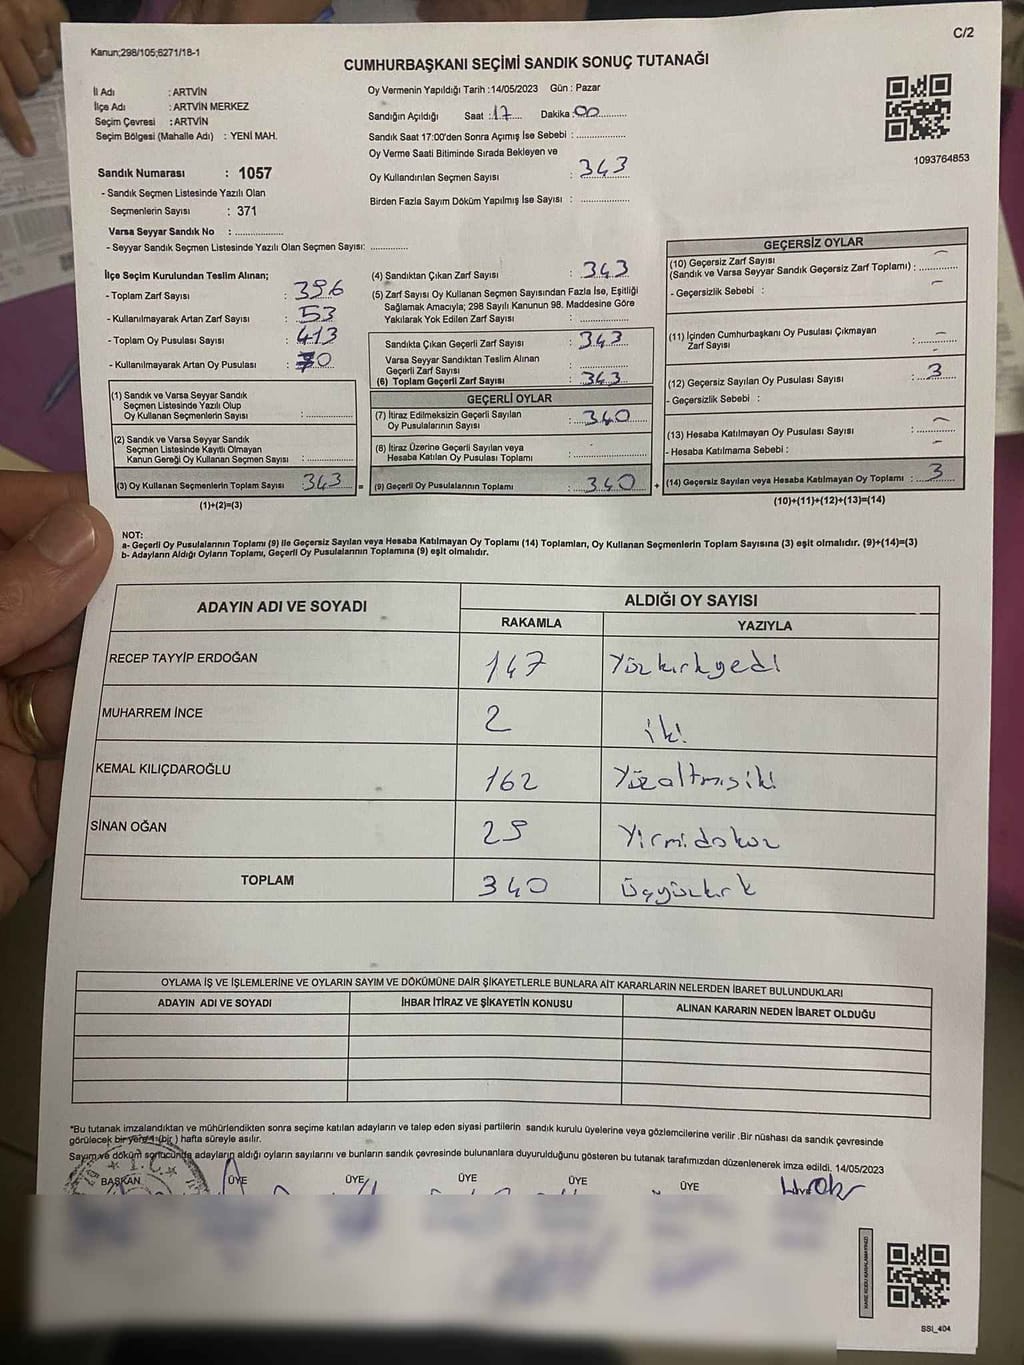 C/2
Kanun;298/105;6271/18-1
CUMHURBAŞKANI SEÇİMİ SANDIK SONUÇ TUTANAĞI
İl Adı : ARTVİN
İlçe Adı : ARTVİN MERKEZ
Seçim Çevresi : ARTVİN
Seçim Bölgesi (Mahalle Adı) : YENİ MAH.
Sandık Numarası : 1057
- Sandık Seçmen Listesinde Yazılı Olan
Seçmenlerin Sayısı : 371
Varsa Seyyar Sandık No : ..............
- Seyyar Sandık Seçmen Listesinde Yazılı Olan Seçmen Sayısı: ............
Oy Vermenin Yapıldığı Tarih :14/05/2023 Gün : Pazar
Sandığın Açıldığı Saat : 17 Dakika : 00
Sandık Saat 17:00'den Sonra Açımış İse Sebebi : ..............
Oy Verme Saati Bitiminde Sırada Bekleyen ve
Oy Kullandırılan Seçmen Sayısı : 343
Birden Fazla Sayım Döküm Yapılmış İse Sayısı : ..............
1093764853
İlçe Seçim Kurulundan Teslim Alınan;
- Toplam Zarf Sayısı : 396
- Kullanılmayarak Artan Zarf Sayısı : 53
- Toplam Oy Pusulası Sayısı : 413
- Kullanılmayarak Artan Oy Pusulası : 70
(1) Sandık ve Varsa Seyyar Sandık
Seçmen Listesinde Yazılı Olup
Oy Kullanan Seçmenlerin Sayısı : ..............
(2) Sandık ve Varsa Seyyar Sandık
Seçmen Listesinde Kayıtlı Olmayan
Kanun Gereği Oy Kullanan Seçmen Sayısı : ..............
(3) Oy Kullanan Seçmenlerin Toplam Sayısı : 343 =
(1)+(2)=(3)
(4) Sandıktan Çıkan Zarf Sayısı : 343
(5) Zarf Sayısı Oy Kullanan Seçmen Sayısından Fazla İse, Eşitliği
Sağlamak Amacıyla; 298 Sayılı Kanunun 98. Maddesine Göre
Yakılarak Yok Edilen Zarf Sayısı : ..............
Sandıkta Çıkan Geçerli Zarf Sayısı : 343
Varsa Seyyar Sandıktan Teslim Alınan
Geçerli Zarf Sayısı : ..............
(6) Toplam Geçerli Zarf Sayısı : 343
GEÇERLİ OYLAR
(7) İtiraz Edilmeksizin Geçerli Sayılan
Oy Pusulalarının Sayısı : 340
(8) İtiraz Üzerine Geçerli Sayılan veya
Hesaba Katılan Oy Pusulası Toplamı : ..............
(9) Geçerli Oy Pusulalarının Toplamı : 340 +
GEÇERSİZ OYLAR
(10) Geçersiz Zarf Sayısı
(Sandık ve Varsa Seyyar Sandık Geçersiz Zarf Toplamı) : -
- Geçersizlik Sebebi : -
(11) İçinden Cumhurbaşkanı Oy Pusulası Çıkmayan
Zarf Sayısı : -
(12) Geçersiz Sayılan Oy Pusulası Sayısı : 3
- Geçersizlik Sebebi :
(13) Hesaba Katılmayan Oy Pusulası Sayısı : -
- Hesaba Katılmama Sebebi : -
(14) Geçersiz Sayılan veya Hesaba Katılmayan Oy Toplamı : 3
(10)+(11)+(12)+(13)=(14)
NOT:
a- Geçerli Oy Pusulalarının Toplamı (9) ile Geçersiz Sayılan veya Hesaba Katılmayan Oy Toplamı (14) Toplamları, Oy Kullanan Seçmenlerin Toplam Sayısına (3) eşit olmalıdır. (9)+(14)=(3)
b- Adayların Aldığı Oyların Toplamı, Geçerli Oy Pusulalarının Toplamına (9) eşit olmalıdır.
ADAYIN ADI VE SOYADI ALDIĞI OY SAYISI
RAKAMLA YAZIYLA
RECEP TAYYİP ERDOĞAN 147 Yüzkırkyedi
MUHARREM İNCE 2 iki
KEMAL KILIÇDAROĞLU 162 Yüzaltmışiki
SİNAN OĞAN 29 Yirmidokuz
TOPLAM 340 Üçyüzkırk
OYLAMA İŞ VE İŞLEMLERİNE VE OYLARIN SAYIM VE DÖKÜMÜNE DAİR ŞİKAYETLERLE BUNLARA AİT KARARLARIN NELERDEN İBARET BULUNDUKLARI
ADAYIN ADI VE SOYADI İHBAR İTİRAZ VE ŞİKAYETİN KONUSU ALINAN KARARIN NEDEN İBARET OLDUĞU
*Bu tutanak imzalandıktan ve mühürlendikten sonra seçime katılan adayların ve talep eden siyasi partilerin sandık kurulu üyelerine veya gözlemcilerine verilir .Bir nüshası da sandık çevresinde
görülecek bir yere 1 (bir ) hafta süreyle asılır.
Sayım ve döküm sonucunda adayların aldığı oyların sayılarını ve bunların sandık çevresinde bulunanlara duyurulduğunu gösteren bu tutanak tarafımızdan düzenlenerek imza edildi. 14/05/2023
BAŞKAN ÜYE ÜYE ÜYE ÜYE ÜYE
SSI_404